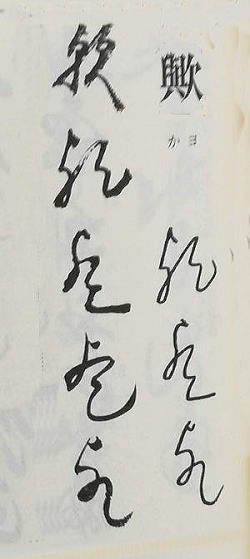 歟
ヨ
か
歟
歟
歟
歟
歟
歟
歟
歟